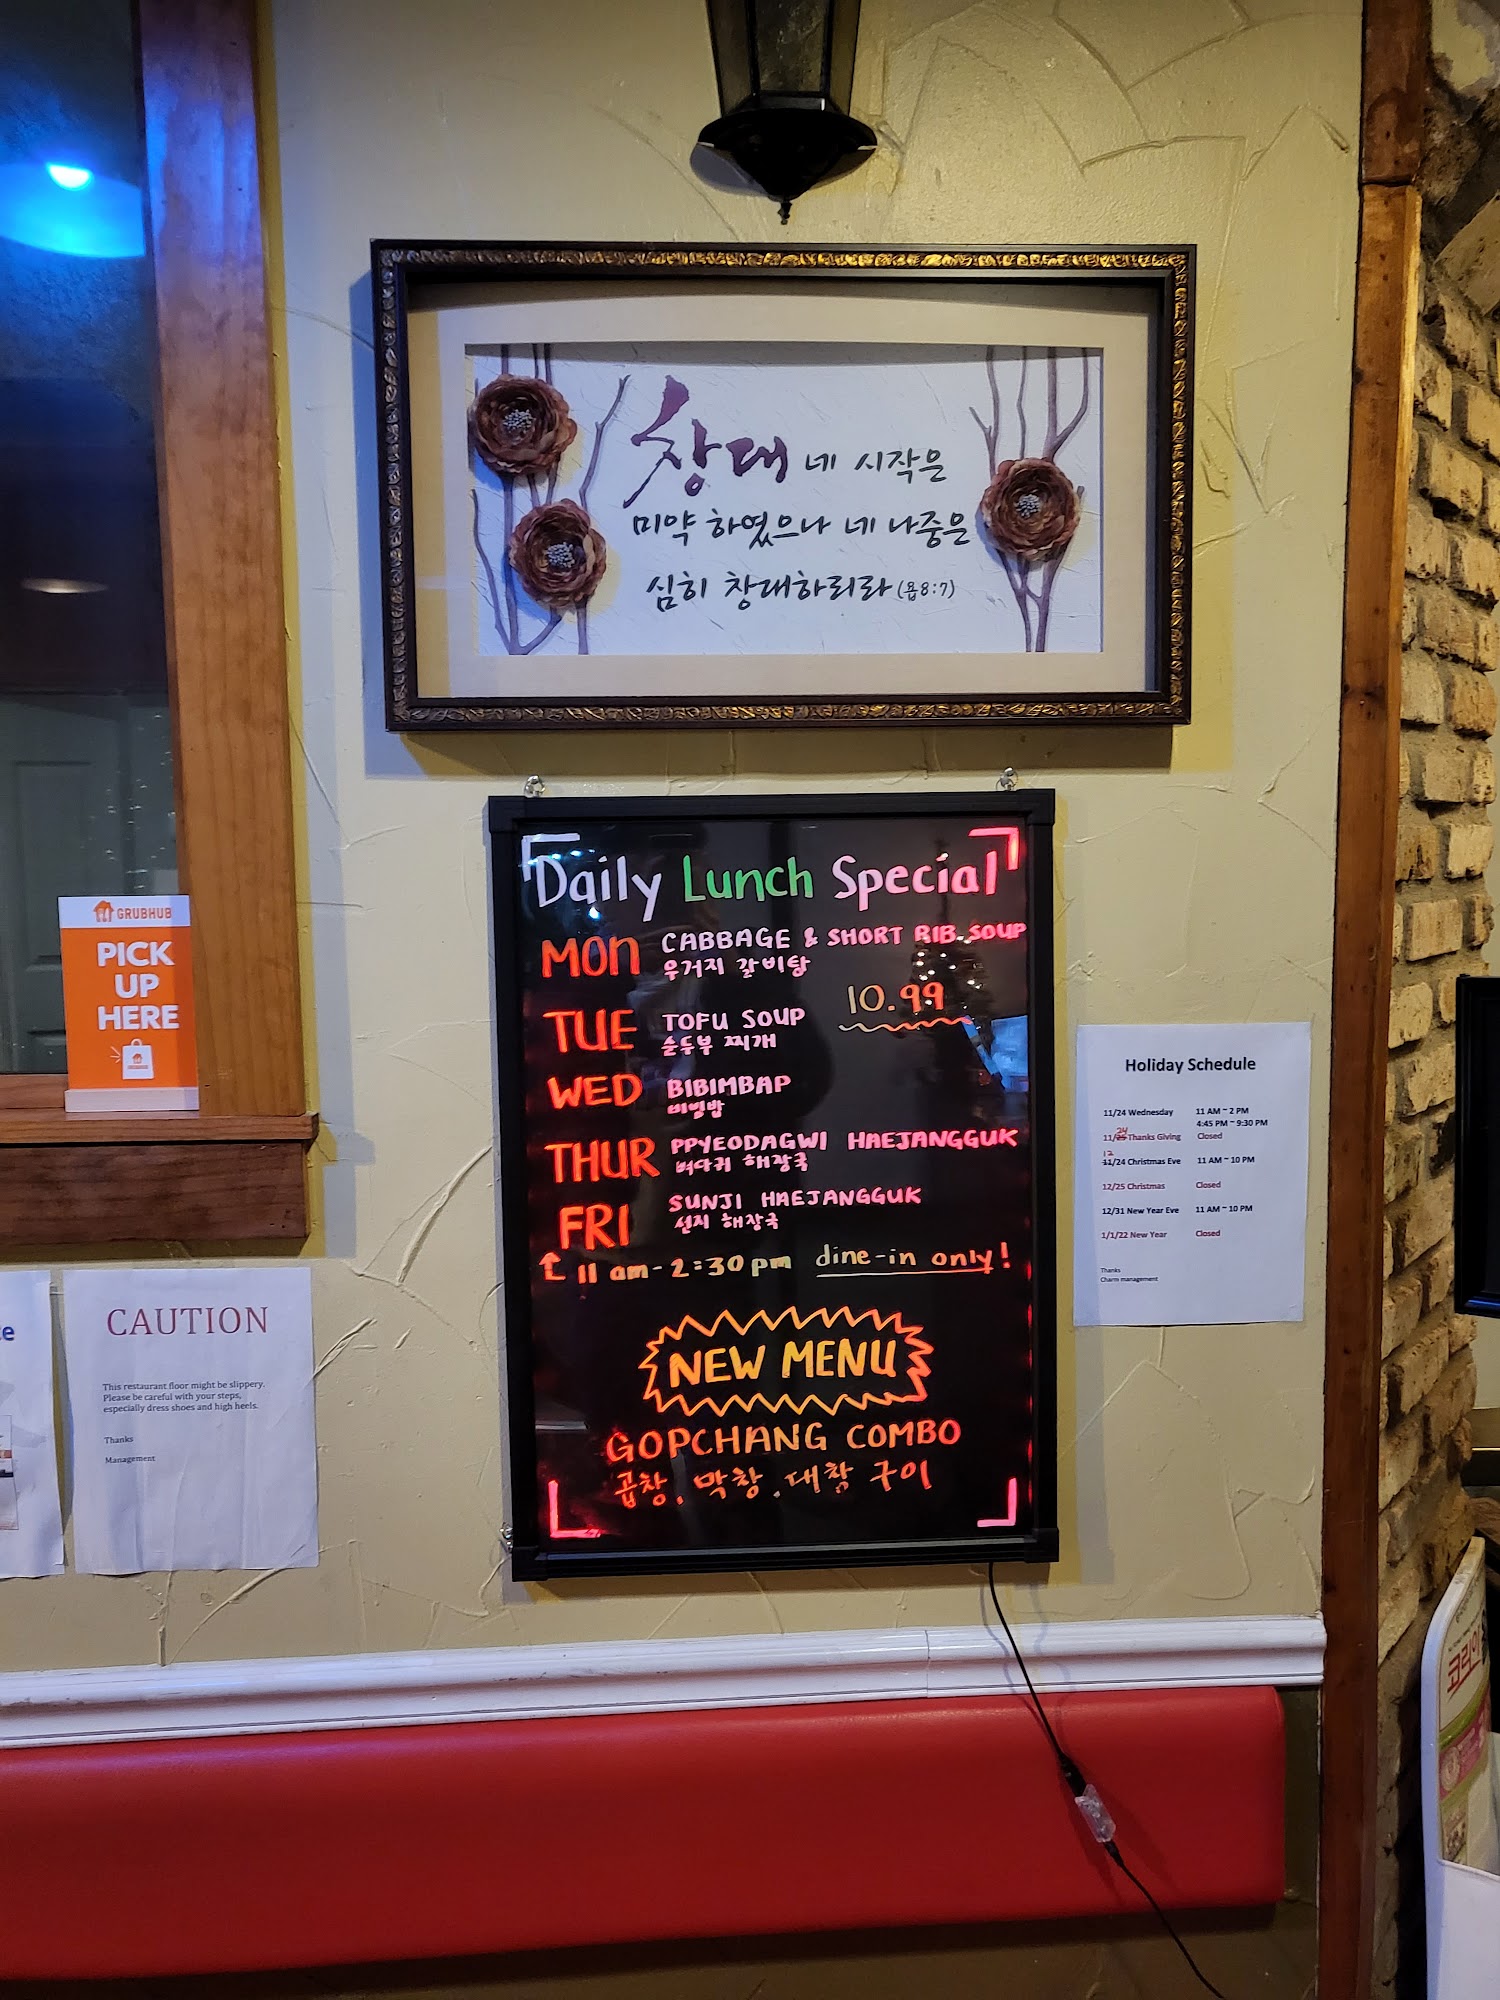 창대 네 시작은
미약 하였으나 네 나중은
심히 창대하리라 (욥8:7)
Daily Lunch Special
MON CABBAGE & SHORT RIB SOUP
우거지 갈비탕
10.99
TUE TOFU SOUP
순두부 찌개
WED BIBIMBAP
비빔밥
THUR PPYEODAGWI HAEJANGGUK
뼈다귀 해장국
FRI SUNJI HAEJANGGUK
선지 해장국
11 am - 2:30 pm dine-in only!
NEW MENU
GOPCHANG COMBO
곱창, 막창, 대창 구이
GRUBHUB
PICK
UP
HERE
CAUTION
This restaurant floor might be slippery.
Please be careful with your steps,
especially dress shoes and high heels.
Thanks
Management
Holiday Schedule
11/24 Wednesday 11 AM ~ 2 PM
4:45 PM ~ 9:30 PM
11/25 Thanks Giving Closed
24
12
11/24 Christmas Eve 11 AM ~ 10 PM
12/25 Christmas Closed
12/31 New Year Eve 11 AM ~ 10 PM
1/1/22 New Year Closed
Thanks
Charm management
코리아